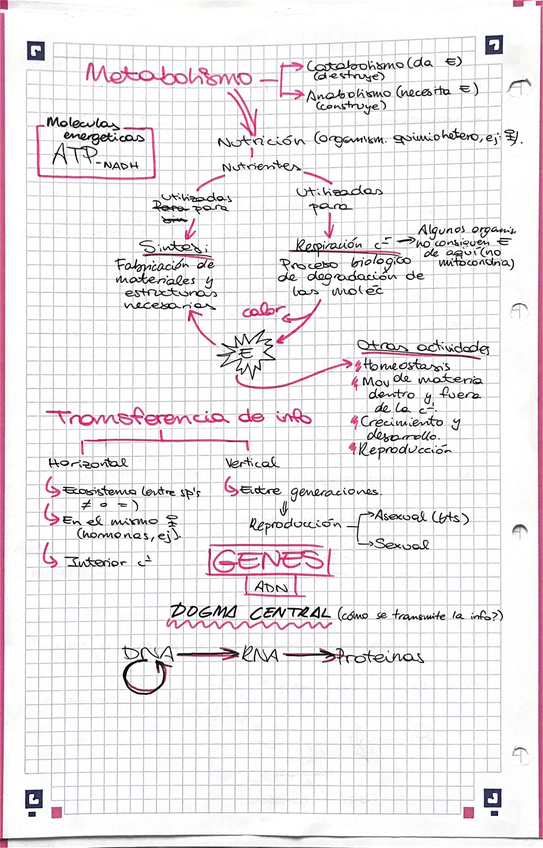 Metabolismo
Catabolismo (da E)
(destruye)
Anabolismo (necesita E)
(construye)
Moleculas
energeticas
ATP - NADH
Nutrición (organism. quimiohetero, ej:
Nutrientes
Utilizadas
para
Utilizadas
para
Sintesi:
Fabricación de
materiales y
estructuras
necesarias
Respiración
Proceso biológico
de degradación de
las molec
Algunos organis.
no consiguen E
de aquí (no
mitocondria)
calor
E
Otras actividades
Homeostasis
Mov de materia
dentro y fuera
de la
Crecimiento y
desarrollo.
Reproducción
Transferencia de info
Horizontal
Ecosistema (entre sp's
≠ o =)
En el mismo
(hormonas, ej).
Interior
Vertical
Entre generaciones.
Reproducción
Asexual (bts)
Sexual
GENES
ADN
DOGMA CENTRAL (cómo se transmite la info?)
DNA → RNA → Proteinas